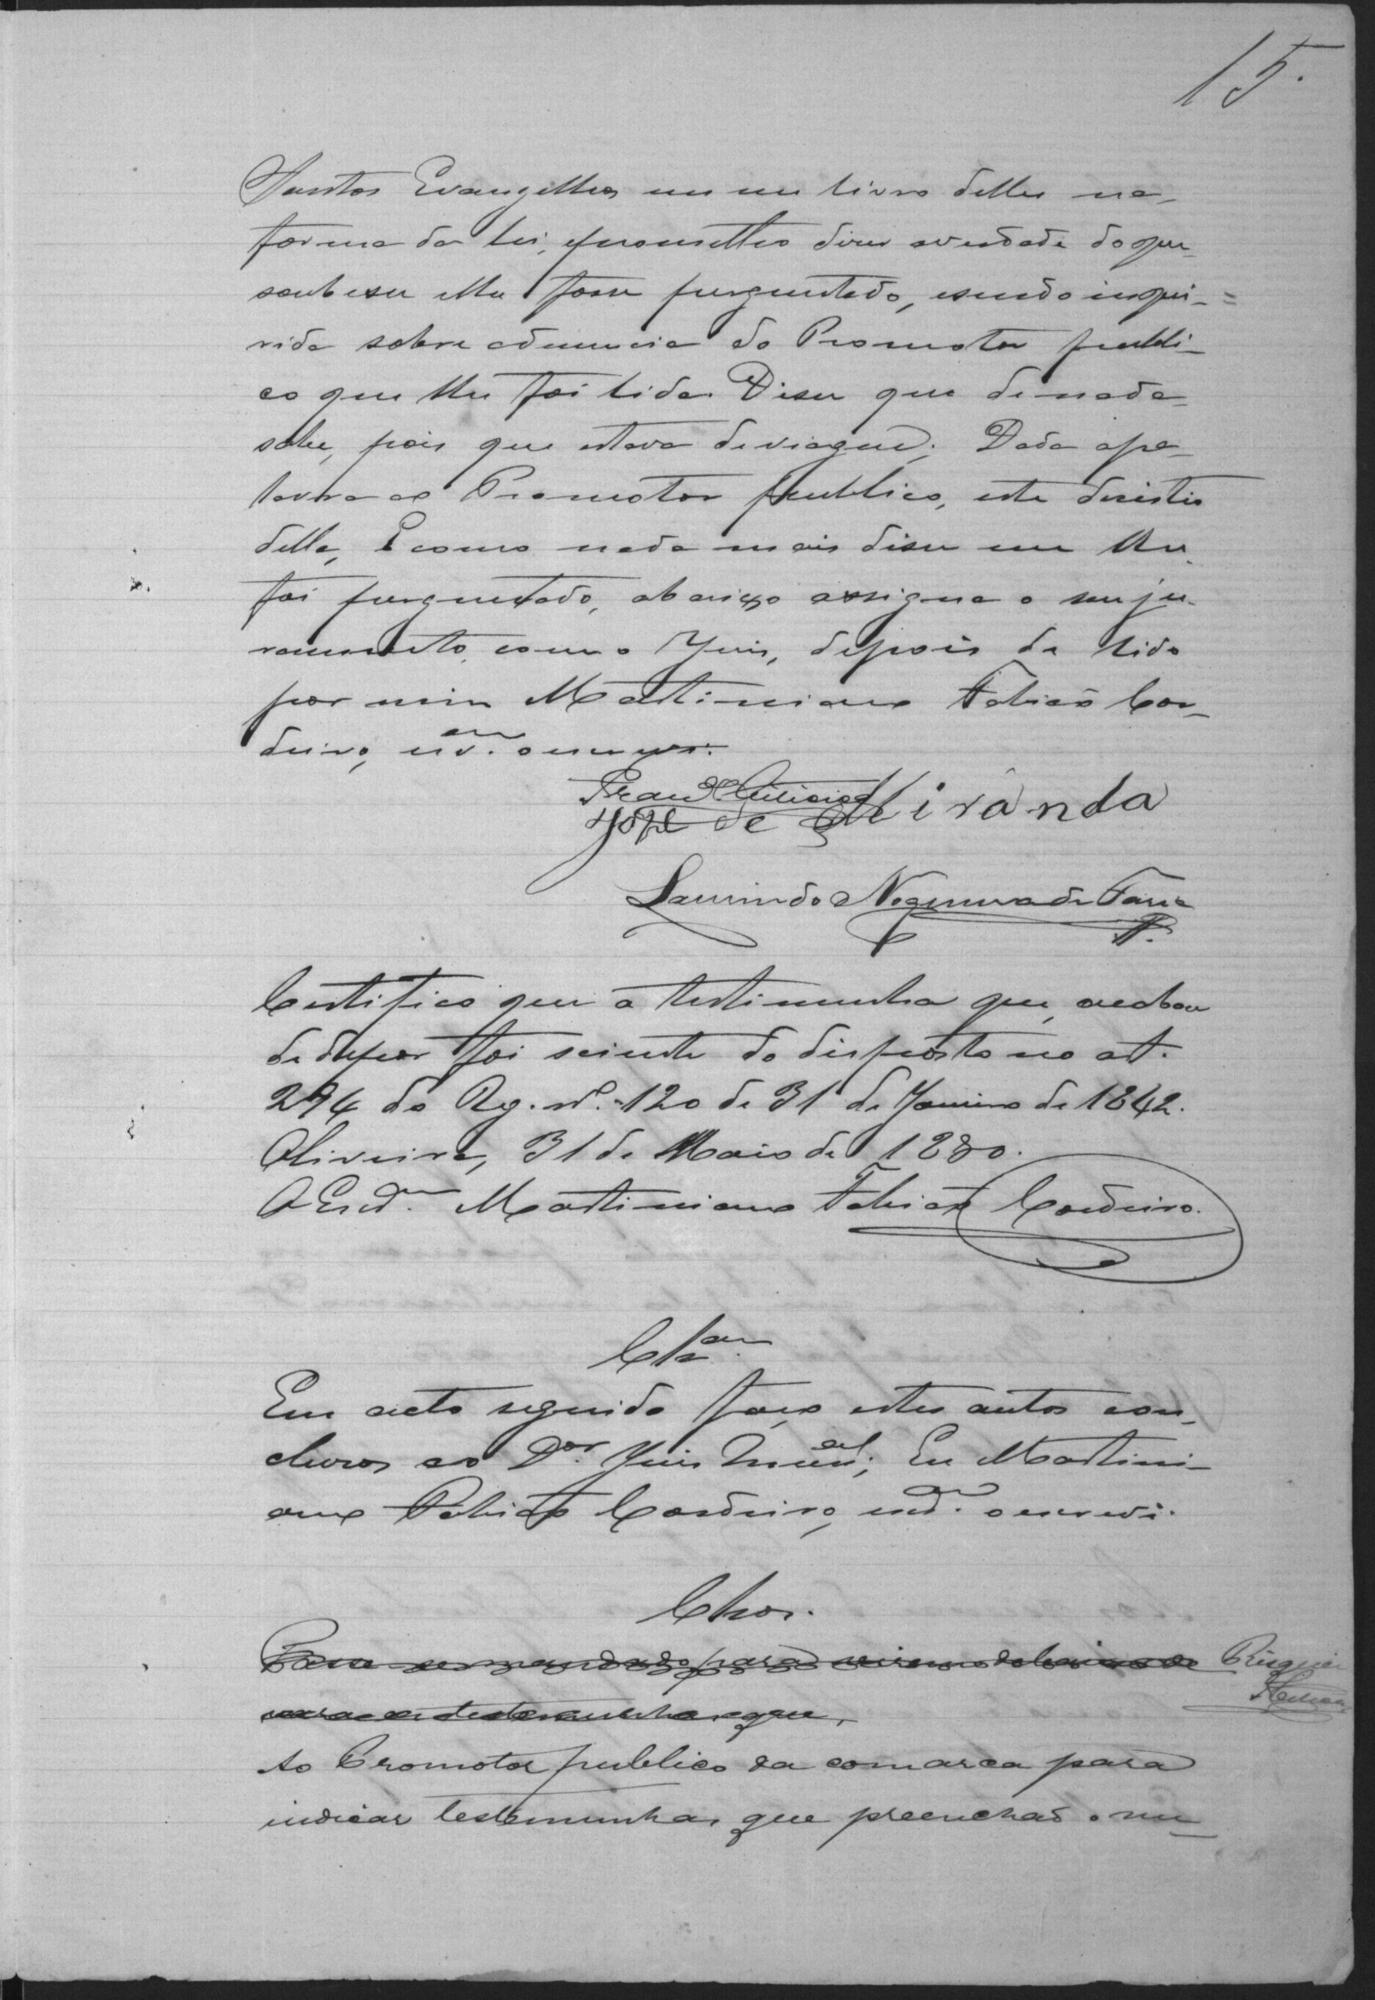 15.
Santos Evangelhos em um livro delles na
forma da lei, eprometteo diser averdade do que
soubesse e lhe fosse perguntado, esendo inqui-
rido sobre adenuncia do Promotor publi-
co que lhe foi lida. Disse que de nada
sabe, pois que estava deviagem. Dada apa-
lavra ao Promotor publico, este desistio
della, E como nada mais disse nem lhe
foi perguntado, abaixo assigna o seu ju-
ramento, com o Juis, depois de lido
por mim Martiniano Fabião Cor-
deiro, escr.am o escrevi.
José de Miranda
Laurindo Nogueira de Faria
Certifico que a testimunha que acabou
de depor foi sciente do disposto no art.
294 do Reg. nº. 120 de 31 de Janeiro de 1842.
Oliveira, 31 de Maio de 1880.
O Escr.am Martiniano Fabião Cordeiro.
Clz.am
Em acto seguido faço estes autos con-
clusos ao D.or Juis Mun.al; Eu Martini-
ano Fabião Cordeiro, escr.am o escrevi.
Clsos.
Ao Promotor publico da comarca para
indicar testemunhas que preenchaõ o nu-